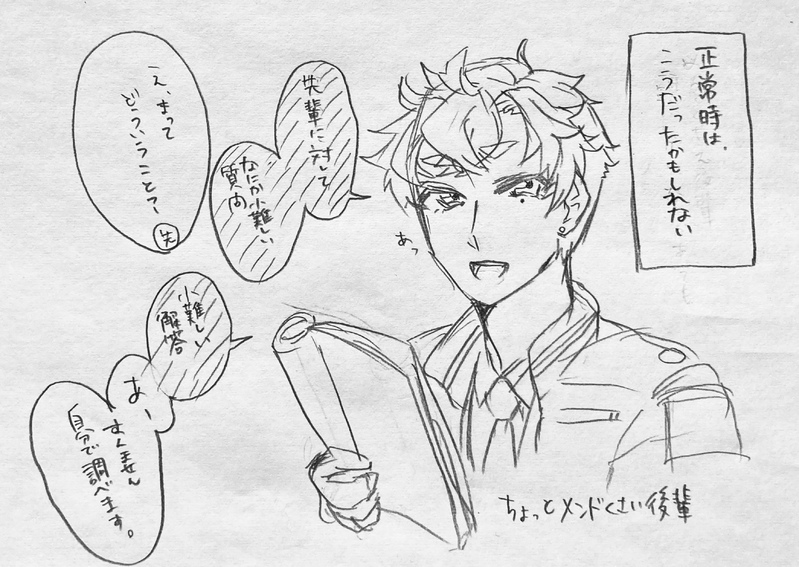 正常時は、
こうだったかもしれない
先輩に対して
なにか小難しい
質問
あっ
え、まって
どういうこと?
先
小難しい
解答
あー
すんません
自分で調べます。
ちょっとメンドくさい後輩